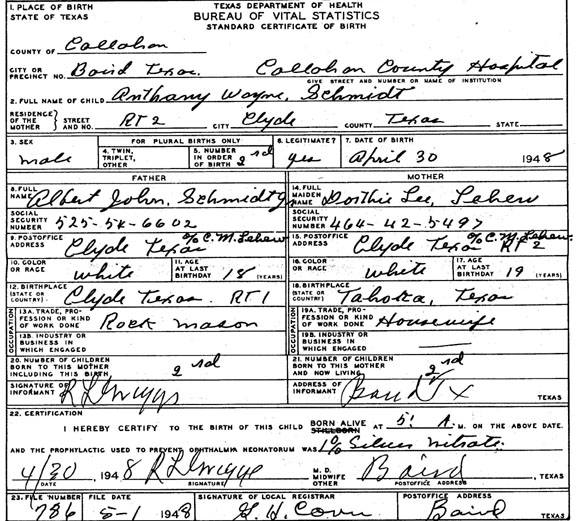 1. PLACE OF BIRTH
STATE OF TEXAS
TEXAS DEPARTMENT OF HEALTH
BUREAU OF VITAL STATISTICS
STANDARD CERTIFICATE OF BIRTH
COUNTY OF Callahan
CITY OR PRECINCT NO. Baird Texas. Callahan County Hospital
GIVE STREET AND NUMBER OR NAME OF INSTITUTION
2. FULL NAME OF CHILD Anthany Wayne, Schmidt
RESIDENCE OF THE MOTHER STREET AND NO. RT 2 CITY Clyde COUNTY Texas STATE
3. SEX male
FOR PLURAL BIRTHS ONLY
4. TWIN, TRIPLET, OTHER
5. NUMBER IN ORDER OF BIRTH 2nd
6. LEGITIMATE? yes
7. DATE OF BIRTH April 30 1948
FATHER
MOTHER
8. FULL NAME Albert John, Schmidt Jr
14. FULL MAIDEN NAME Dorthie Lee, Lehew
SOCIAL SECURITY NUMBER 525-54-6602
SOCIAL SECURITY NUMBER 464-42-5497
9. POSTOFFICE ADDRESS Clyde Texas % C. M. Lehew
15. POSTOFFICE ADDRESS Clyde Texas % C. M. Lehew RT 2
10. COLOR OR RACE white
11. AGE AT LAST BIRTHDAY 18 (YEARS)
16. COLOR OR RACE white
17. AGE AT LAST BIRTHDAY 19 (YEARS)
12. BIRTHPLACE (STATE OR COUNTRY) Clyde Texas. RT 1
18. BIRTHPLACE (STATE OR COUNTRY) Tahoka, Texas
OCCUPATION
13A. TRADE, PROFESSION OR KIND OF WORK DONE Rock mason
OCCUPATION
19A. TRADE, PROFESSION OR KIND OF WORK DONE Housewife
13B. INDUSTRY OR BUSINESS IN WHICH ENGAGED
19B. INDUSTRY OR BUSINESS IN WHICH ENGAGED
20. NUMBER OF CHILDREN BORN TO THIS MOTHER INCLUDING THIS BIRTH 2nd
21. NUMBER OF CHILDREN BORN TO THIS MOTHER AND NOW LIVING 2nd
SIGNATURE OF INFORMANT R L Griggs
ADDRESS OF INFORMANT Baird Tx TEXAS
22. CERTIFICATION
I HEREBY CERTIFY TO THE BIRTH OF THIS CHILD BORN ALIVE STILLBORN AT 5: A. M. ON THE ABOVE DATE.
AND THE PROPHYLACTIC USED TO PREVENT OPHTHALMIA NEONATORUM WAS 1% Silver Nitrate
4/30 1948 R L Griggs M. D. MIDWIFE OTHER Baird, TEXAS
DATE SIGNATURE POSTOFFICE ADDRESS
23. FILE NUMBER 786
FILE DATE 5-1 1948
SIGNATURE OF LOCAL REGISTRAR
POSTOFFICE ADDRESS Baird TEXAS